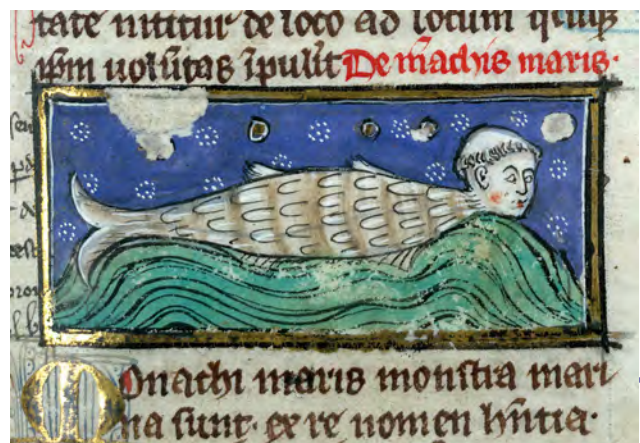 tate nititur de loco ad locum quemq̄
ip̄m uolūtas īpulit De mōachis maris.
Monachi maris monstra mari
na sunt. ex re nomen hn̄tia.